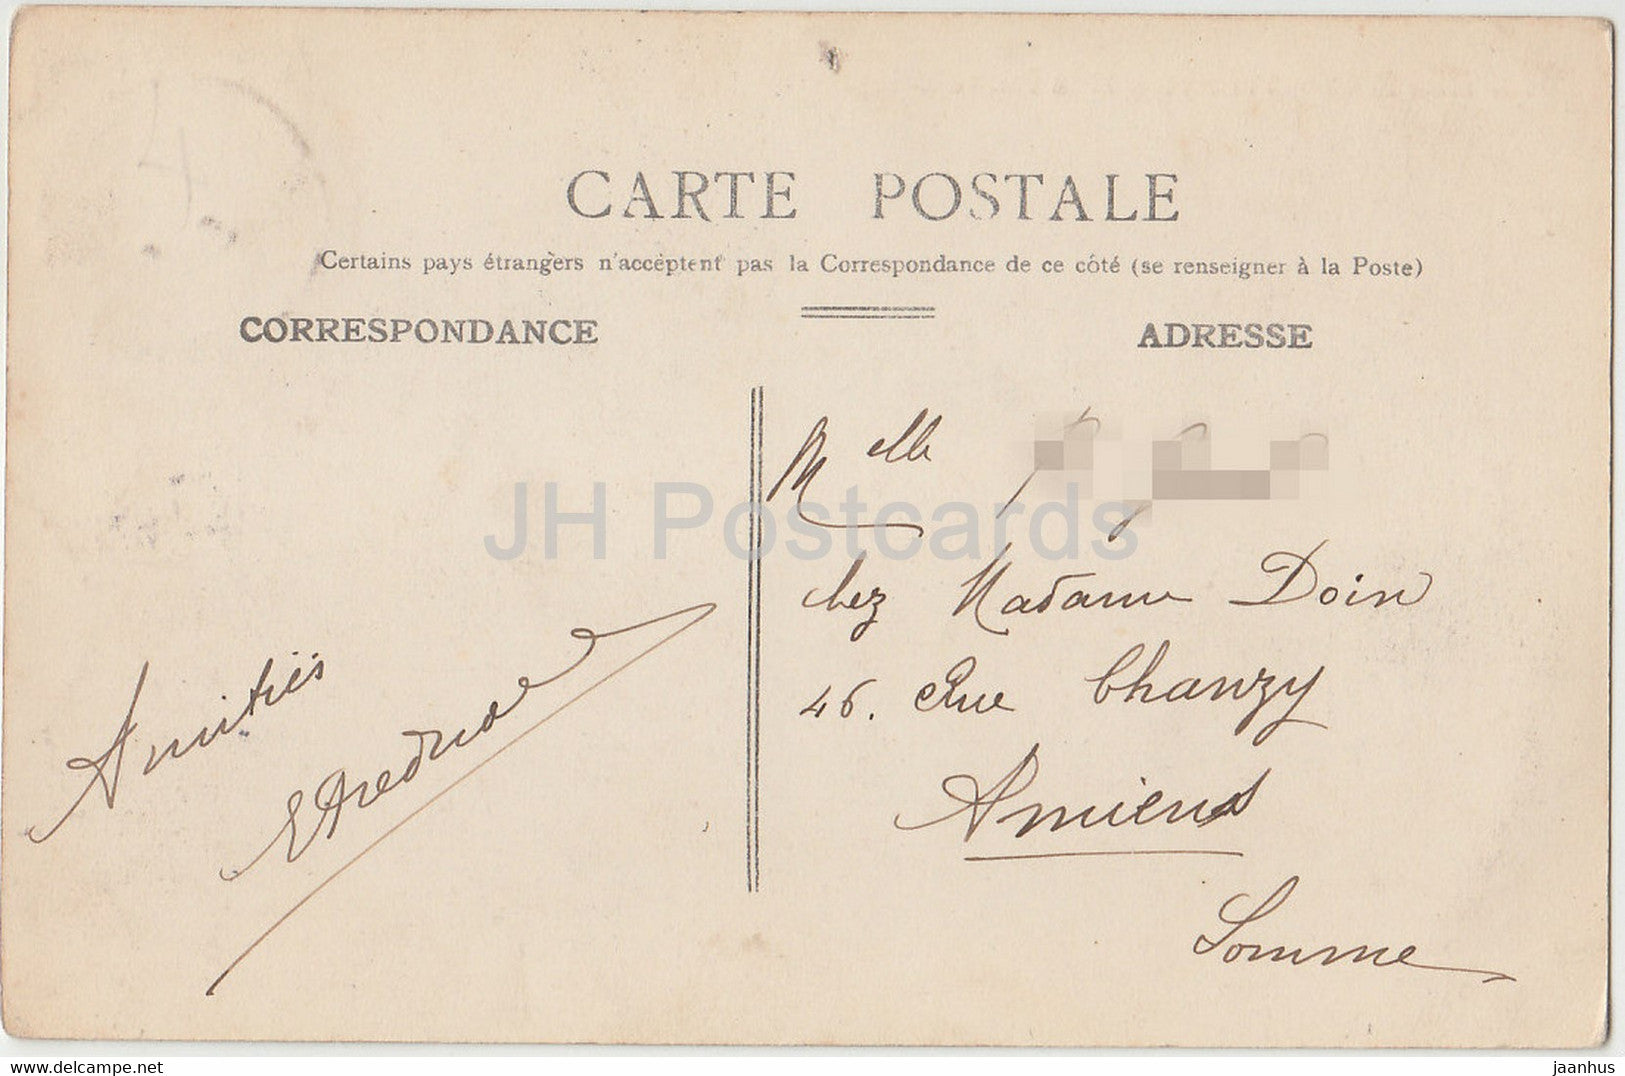 CARTE POSTALE
Certains pays étrangers n'acceptent pas la Correspondance de ce côté (se renseigner à la Poste)
CORRESPONDANCE
ADRESSE
Melle
chez Madame Doin
46. Rue Chanzy
Amiens
Somme
Amitiés
JH Postcards
hipPostcard.com
jaanhus